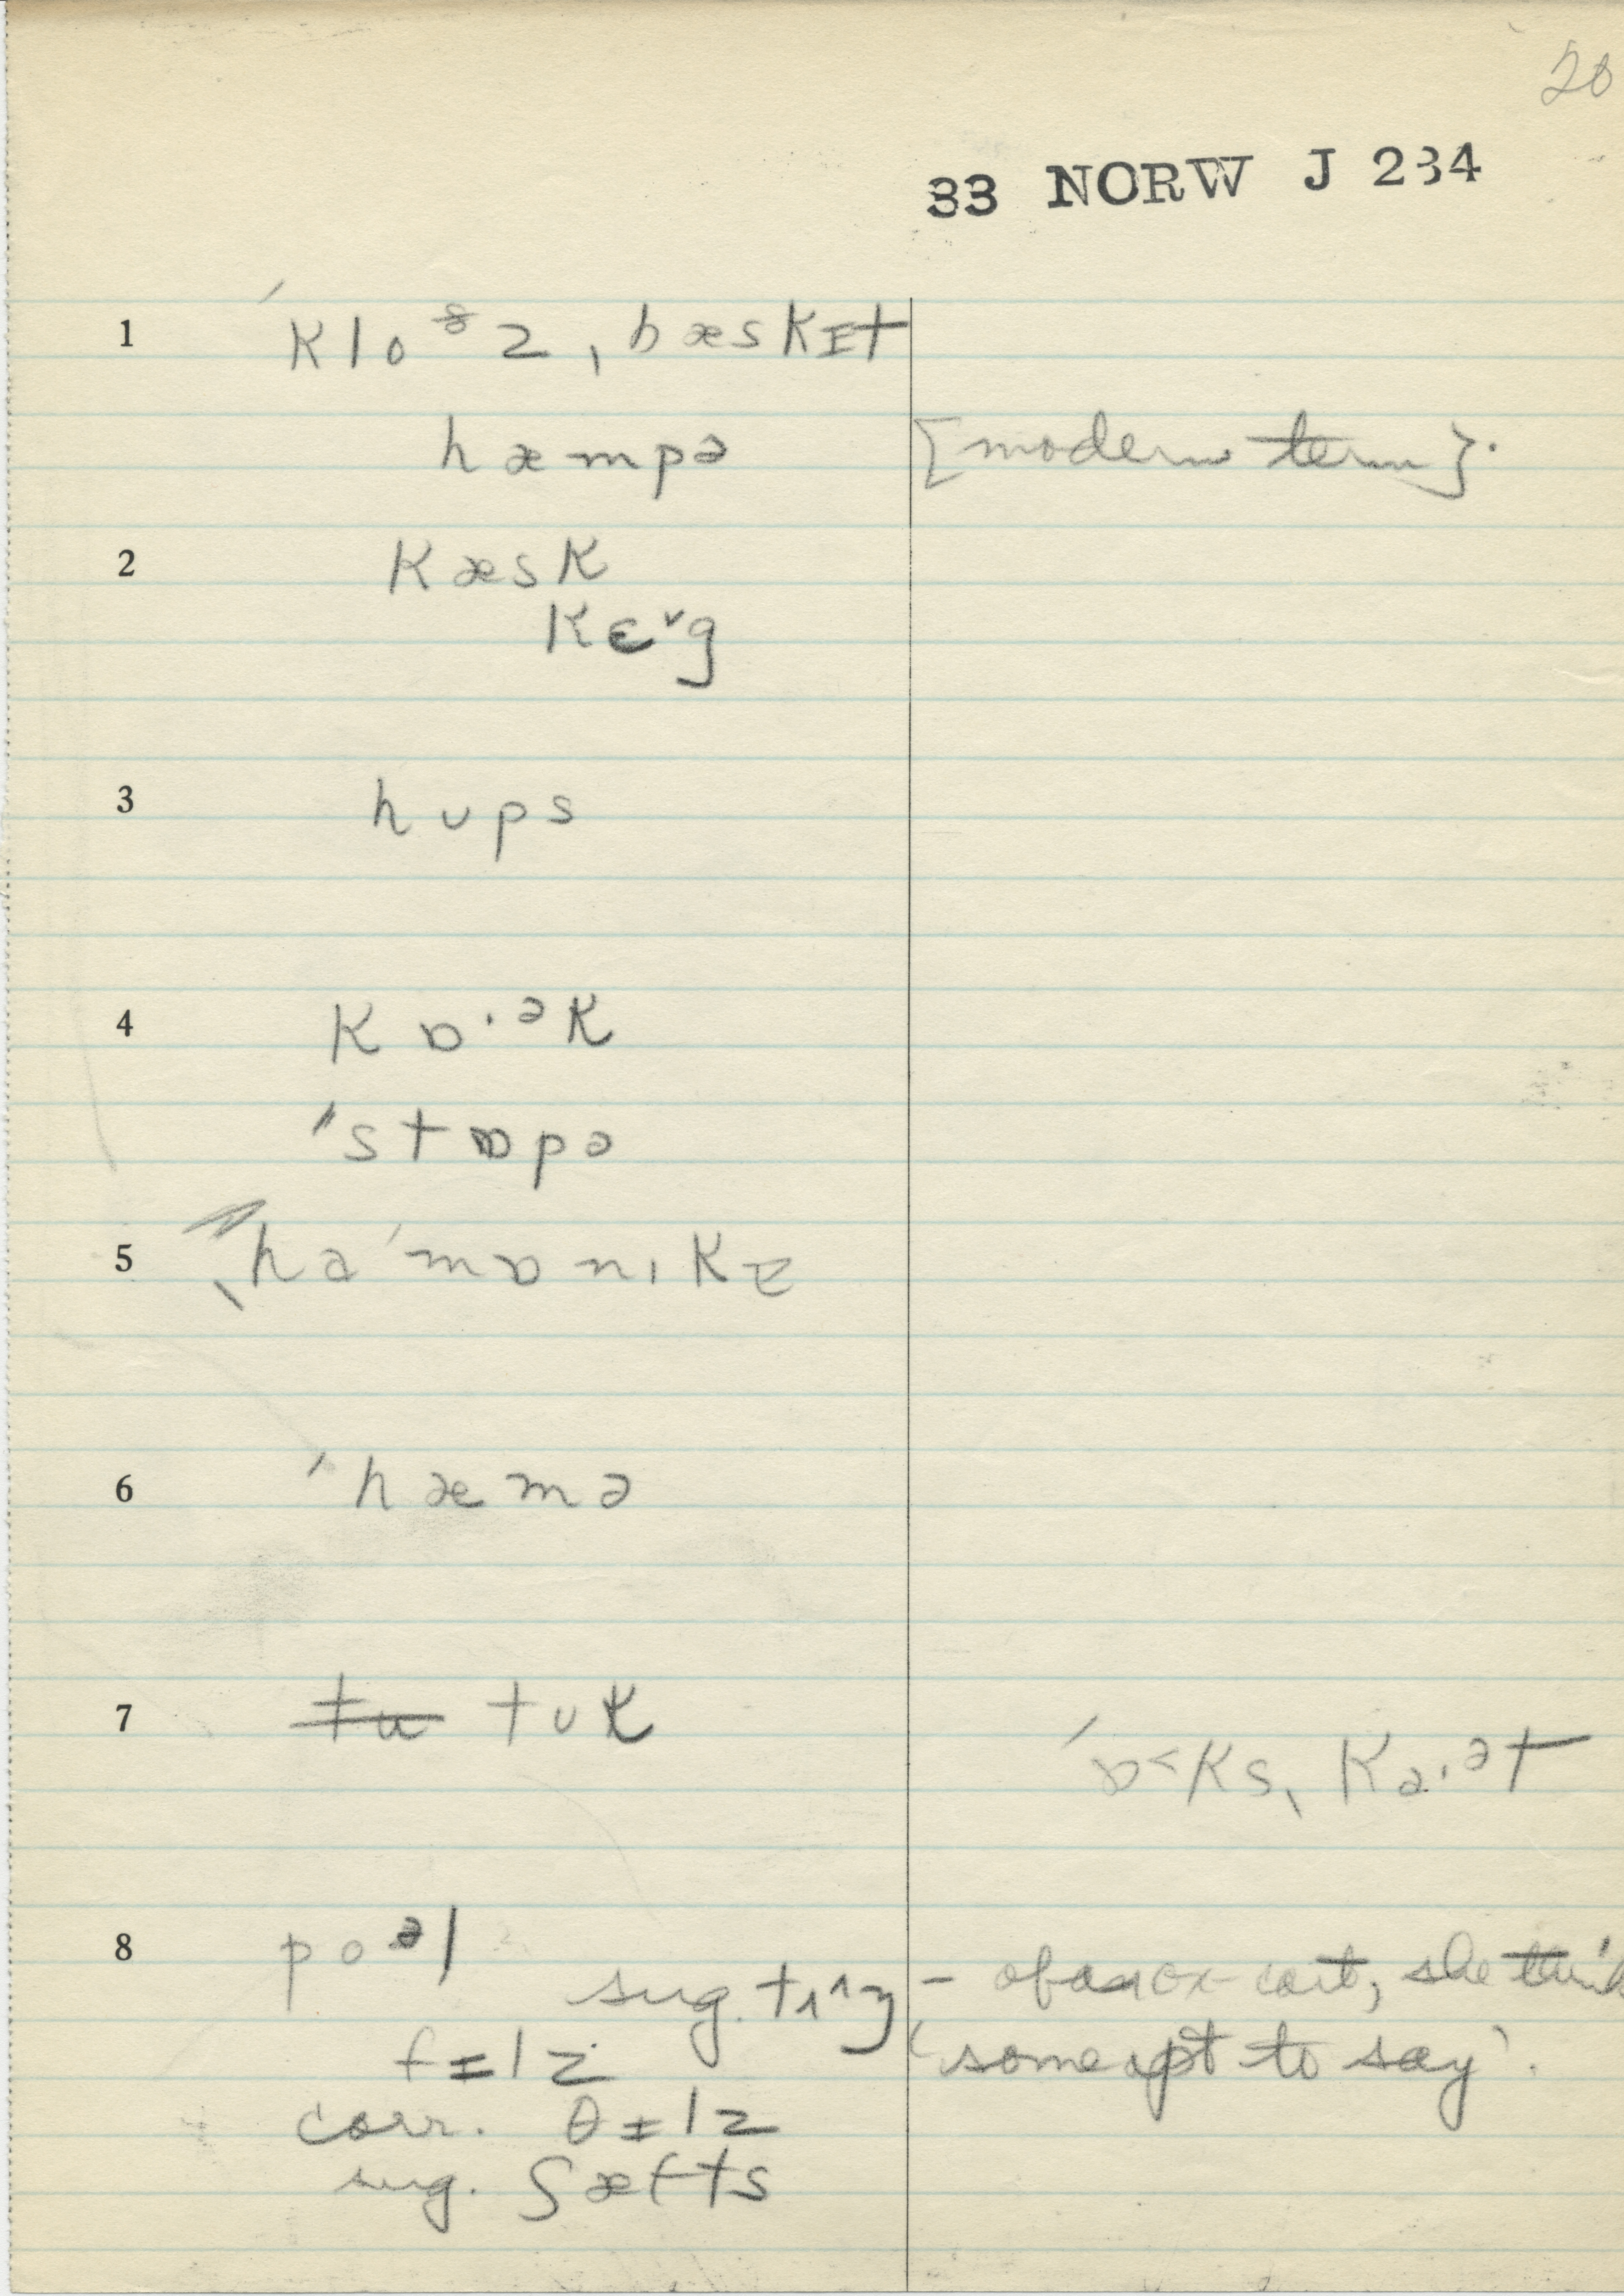 20
33 NORW J 234
1 ˈkloᶞz ˌbæskɪt
hæmpə [modern term].
2 kæsk
kɛˇg
3 hʊps
4 kɒ·ᵊk
ˈstɒpə
5 ˌhaˈmɒnɪkɪ
6 ˈhæmə
7 tu tʊk
ˈɒ˂ksˌka·ᵊt
8 poᵊl
sug. tʌ^ŋ – of an ox-cart, she thinks
fɪlz (some apt to say).
corr. θɪlz
sug. ʃæfts